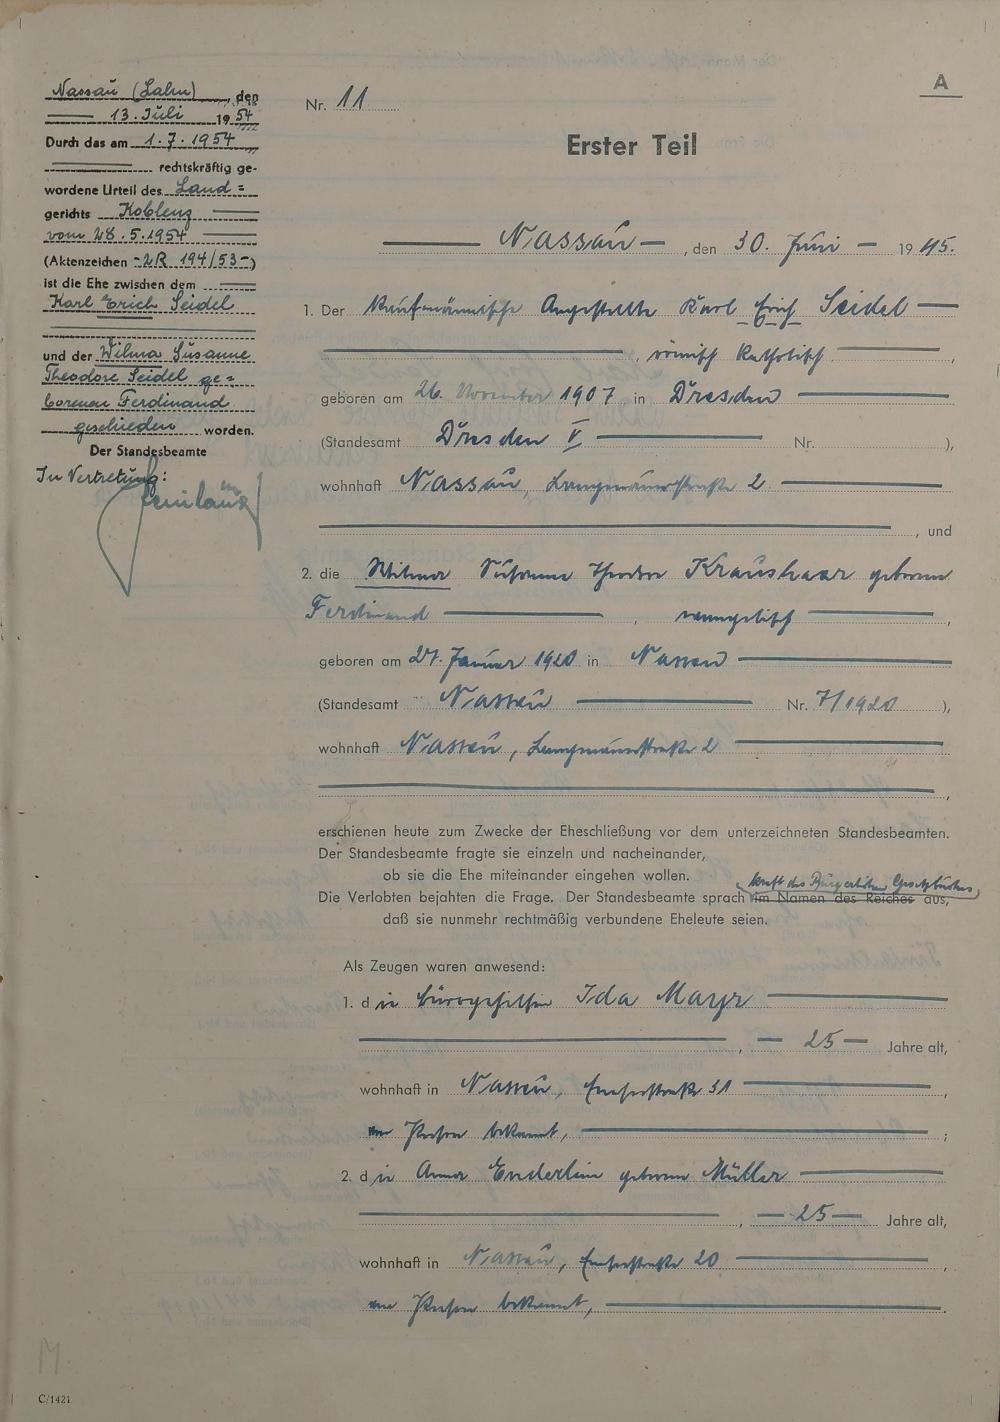 A
Nassau (Lahn), den
13. Juli 1954
Durch das am 1.7.1954
rechtskräftig ge-
wordene Urteil des Land=
gerichts Koblenz
vom 28.5.1954
(Aktenzeichen -2R 194/53-)
ist die Ehe zwischen dem
Karl Erich Seidel
und der Wilma Susanne
Theodore Seidel ge=
borenen Ferdinand
geschieden worden.
Der Standesbeamte
In Vertretung:
Nr. 11
Erster Teil
Nassau, den 30. Juni 1945.
1. Der kaufmännische Angestellte Karl Erich Seidel
, römisch katholisch,
geboren am 26. November 1907 in Dresden
(Standesamt Dresden V Nr. ),
wohnhaft Nassau, Langenauerstraße 2
, und
2. die Wilma Susanna Theodore Kraushaar geborene
Ferdinand, evangelisch,
geboren am 27. Januar 1920 in Nassau
(Standesamt Nassau Nr. 7/1920),
wohnhaft Nassau, Langenauerstraße 2
,
erschienen heute zum Zwecke der Eheschließung vor dem unterzeichneten Standesbeamten.
Der Standesbeamte fragte sie einzeln und nacheinander,
ob sie die Ehe miteinander eingehen wollen.
kraft des Bürgerlichen Gesetzbuches
Die Verlobten bejahten die Frage. Der Standesbeamte sprach im Namen des Reiches aus,
daß sie nunmehr rechtmäßig verbundene Eheleute seien.
Als Zeugen waren anwesend:
1. die Bürogehilfin Ida Mayr
, 25 Jahre alt,
wohnhaft in Nassau, Emserstraße 31,
von Person bekannt, ;
2. die Anna Enderlein geborene Müller
, 25 Jahre alt,
wohnhaft in Nassau, Emserstraße 20,
von Person bekannt, .
C/1421